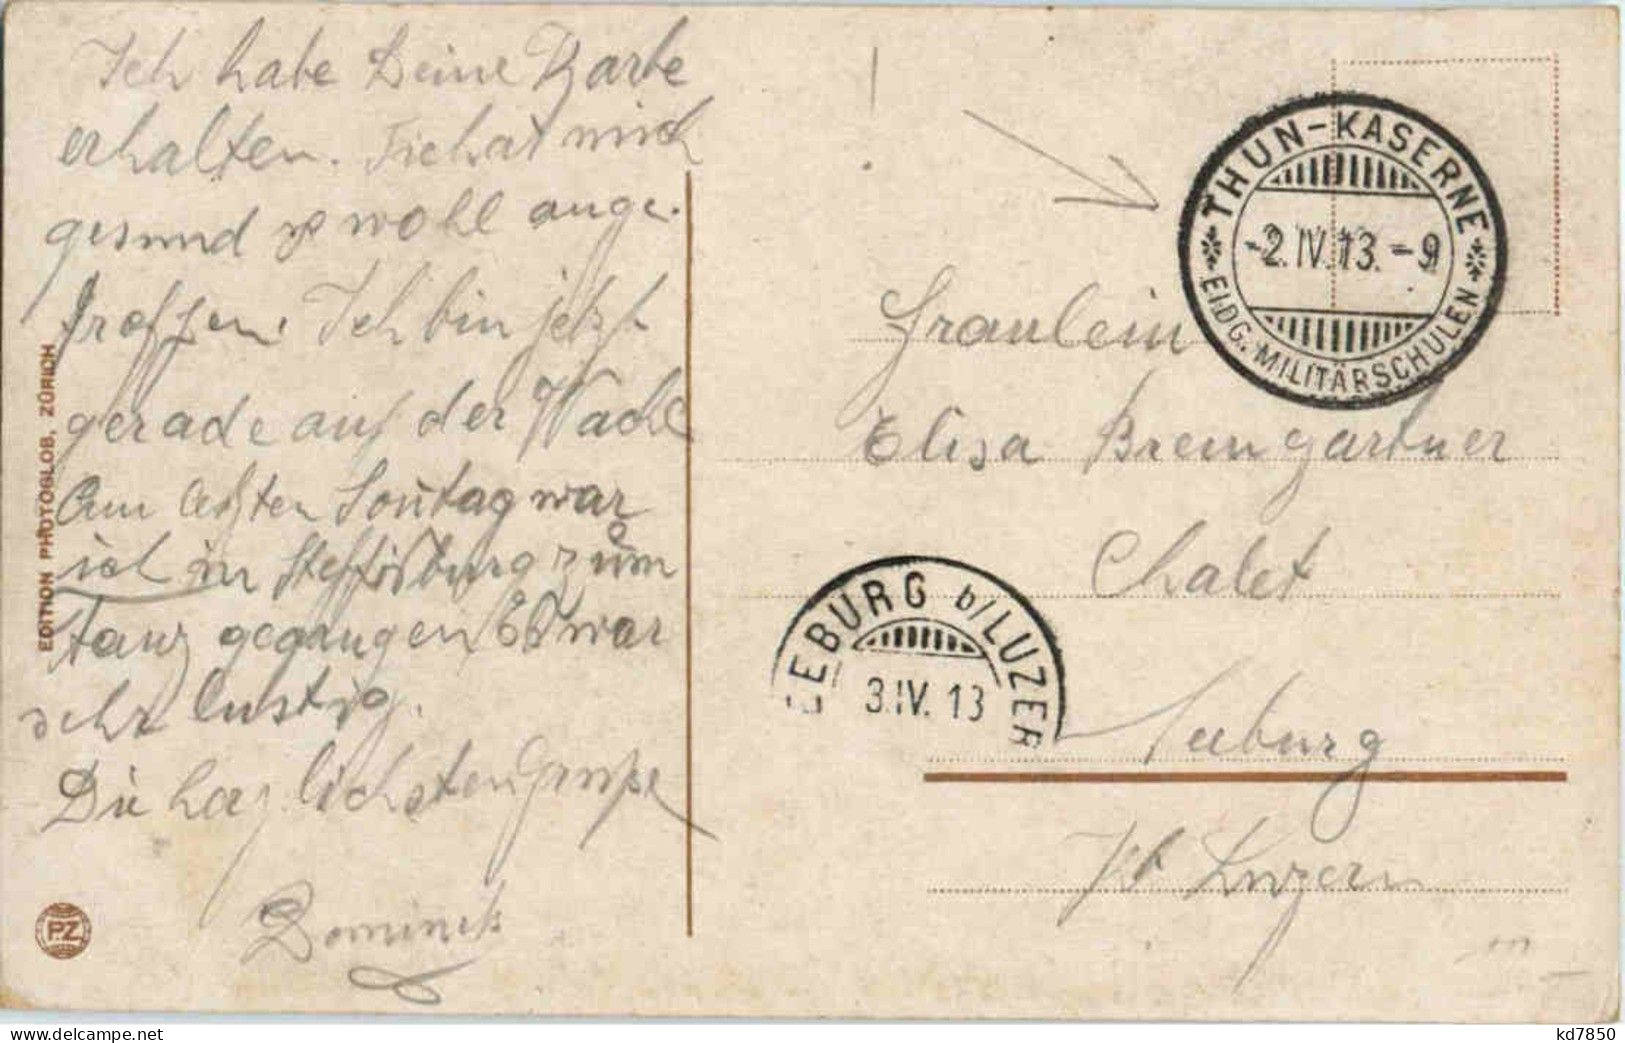 Ich habe Deine Karte
erhalten. Sie hat mich
gesund & wohl ange-
troffen. Ich bin jetzt
gerade auf der Wacht
Am letzten Sontag war
ich in Steffisburg zum
tanz gegangen Es war
sehr lustig.
Die herzlichsten Grüße
Dominik
EDITION PHOTOGLOB, ZÜRICH
P.Z.
THUN-KASERNE
-2.IV.13.-9
EIDG. MILITÄRSCHULEN
Fräulein
Elisa Bremgartner
Chalet
Seeburg
Kt Luzern
SEEBURG b/LUZERN
3.IV.13
kd7850